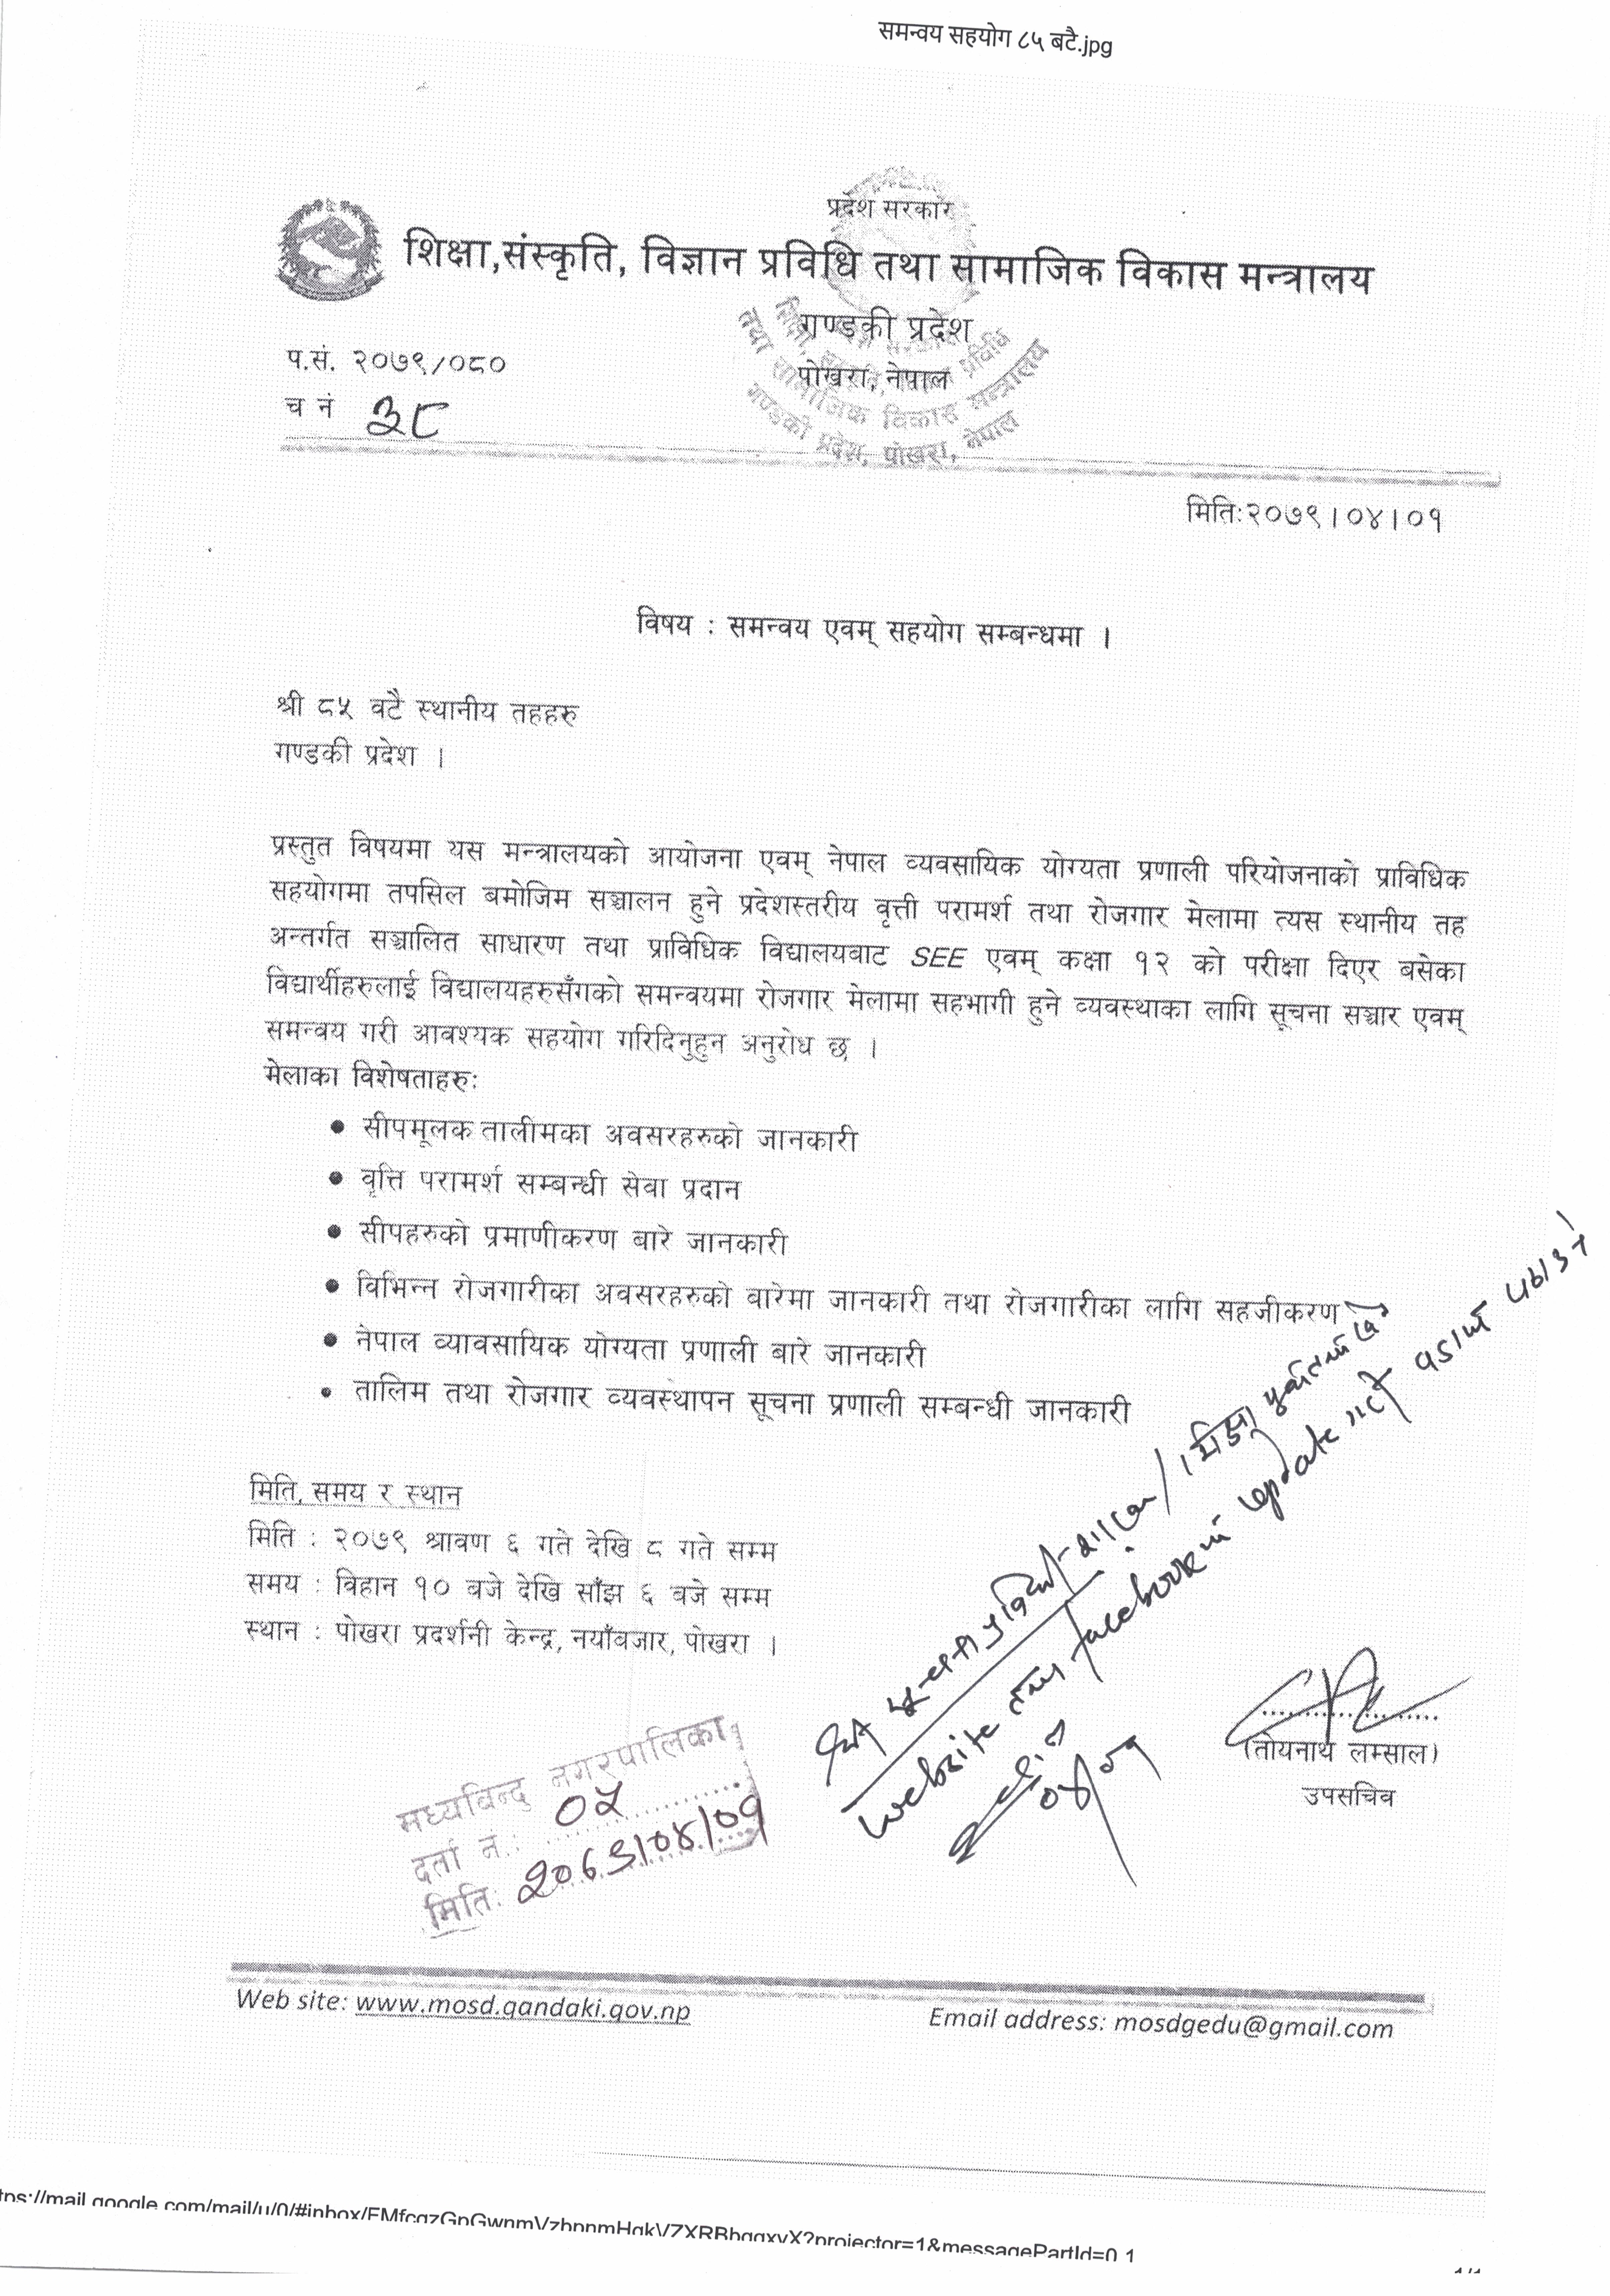 समन्वय सहयोग ८५ बटै.jpg
प्रदेश सरकार
शिक्षा,संस्कृति, विज्ञान प्रविधि तथा सामाजिक विकास मन्त्रालय
गण्डकी प्रदेश
पोखरा, नेपाल
प.सं. २०७९/०८०
च नं ३८
तथा सामाजिक विकास मन्त्रालय
गण्डकी प्रदेश, पोखरा, नेपाल
मितिः२०७९।०४।०१
विषय : समन्वय एवम् सहयोग सम्बन्धमा ।
श्री ८५ वटै स्थानीय तहहरु
गण्डकी प्रदेश ।
प्रस्तुत विषयमा यस मन्त्रालयको आयोजना एवम् नेपाल व्यवसायिक योग्यता प्रणाली परियोजनाको प्राविधिक
सहयोगमा तपसिल बमोजिम सञ्चालन हुने प्रदेशस्तरीय वृत्ती परामर्श तथा रोजगार मेलामा त्यस स्थानीय तह
अन्तर्गत सञ्चालित साधारण तथा प्राविधिक विद्यालयबाट SEE एवम् कक्षा १२ को परीक्षा दिएर बसेका
विद्यार्थीहरुलाई विद्यालयहरुसँगको समन्वयमा रोजगार मेलामा सहभागी हुने व्यवस्थाका लागि सूचना सञ्चार एवम्
समन्वय गरी आवश्यक सहयोग गरिदिनुहुन अनुरोध छ ।
मेलाका विशेषताहरुः
• सीपमूलक तालीमका अवसरहरुको जानकारी
• वृत्ति परामर्श सम्बन्धी सेवा प्रदान
• सीपहरुको प्रमाणीकरण बारे जानकारी
• विभिन्न रोजगारीका अवसरहरुको बारेमा जानकारी तथा रोजगारीका लागि सहजीकरण
• नेपाल व्यावसायिक योग्यता प्रणाली बारे जानकारी
• तालिम तथा रोजगार व्यवस्थापन सूचना प्रणाली सम्बन्धी जानकारी
मिति, समय र स्थान
मिति : २०७९ श्रावण ६ गते देखि ८ गते सम्म
समय : विहान १० बजे देखि साँझ ६ बजे सम्म
स्थान : पोखरा प्रदर्शनी केन्द्र, नयाँबजार, पोखरा ।
website तथा facebook मा update गर्ने
(तोयनाथ लम्साल)
उपसचिव
मध्यविन्दु नगरपालिका
दर्ता नं.: ०५
मिति: २०७९/०४/०१
Web site: www.mosd.gandaki.gov.np
Email address: mosdgedu@gmail.com